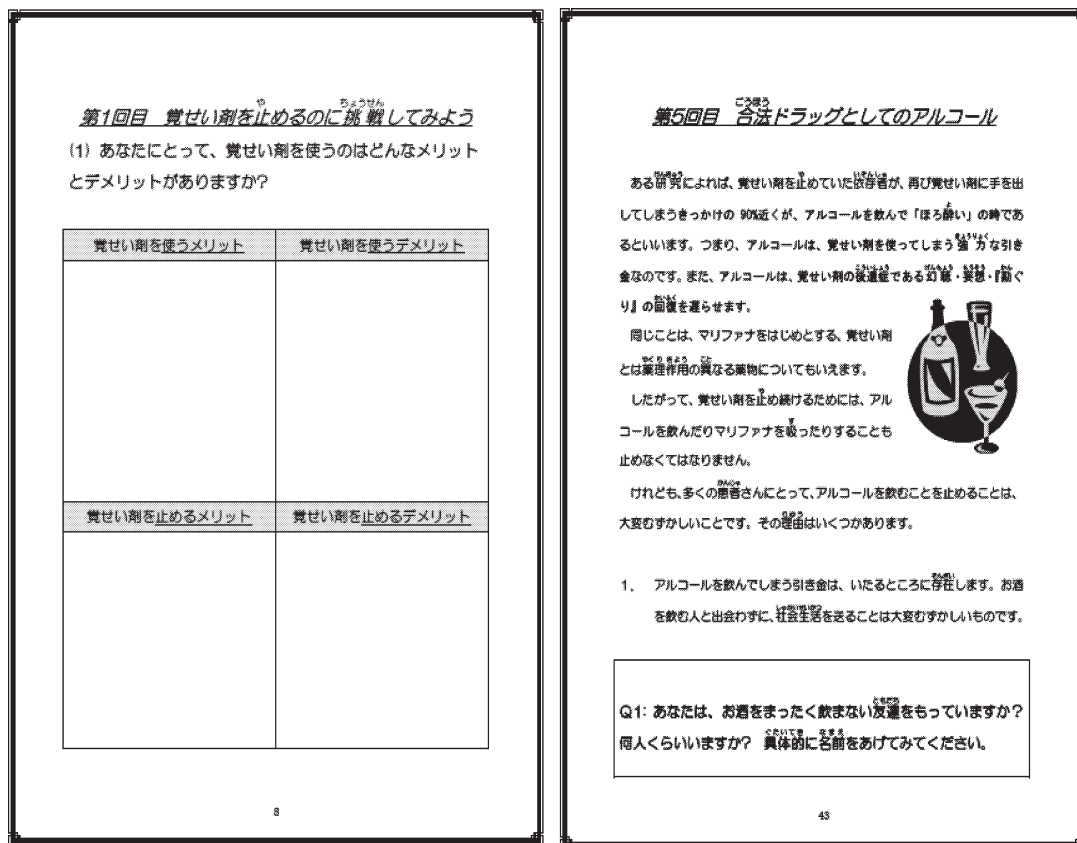 第1回目 覚せい剤を止めるのに挑戦してみよう
(1) あなたにとって、覚せい剤を使うのはどんなメリット
とデメリットがありますか?
覚せい剤を使うメリット
覚せい剤を使うデメリット
覚せい剤を止めるメリット
覚せい剤を止めるデメリット
8
第5回目 合法ドラッグとしてのアルコール
ある研究によれば、覚せい剤を止めていた依存者が、再び覚せい剤に手を出
してしまうきっかけの 90%近くが、アルコールを飲んで「ほろ酔い」の時であ
るといいます。つまり、アルコールは、覚せい剤を使ってしまう強力な引き
金なのです。また、アルコールは、覚せい剤の後遺症である幻聴・妄想・『勘ぐ
り』の回復を遅らせます。
同じことは、マリファナをはじめとする、覚せい剤
とは薬理作用の異なる薬物についてもいえます。
したがって、覚せい剤を止め続けるためには、アル
コールを飲んだりマリファナを吸ったりすることも
止めなくてはなりません。
けれども、多くの患者さんにとって、アルコールを飲むことを止めることは、
大変むずかしいことです。その理由はいくつかあります。
1. アルコールを飲んでしまう引き金は、いたるところに存在します。お酒
を飲む人と出会わずに、社会生活を送ることは大変むずかしいものです。
Q1: あなたは、お酒をまったく飲まない友達をもっていますか?
何人くらいいますか? 具体的に名前をあげてみてください。
43